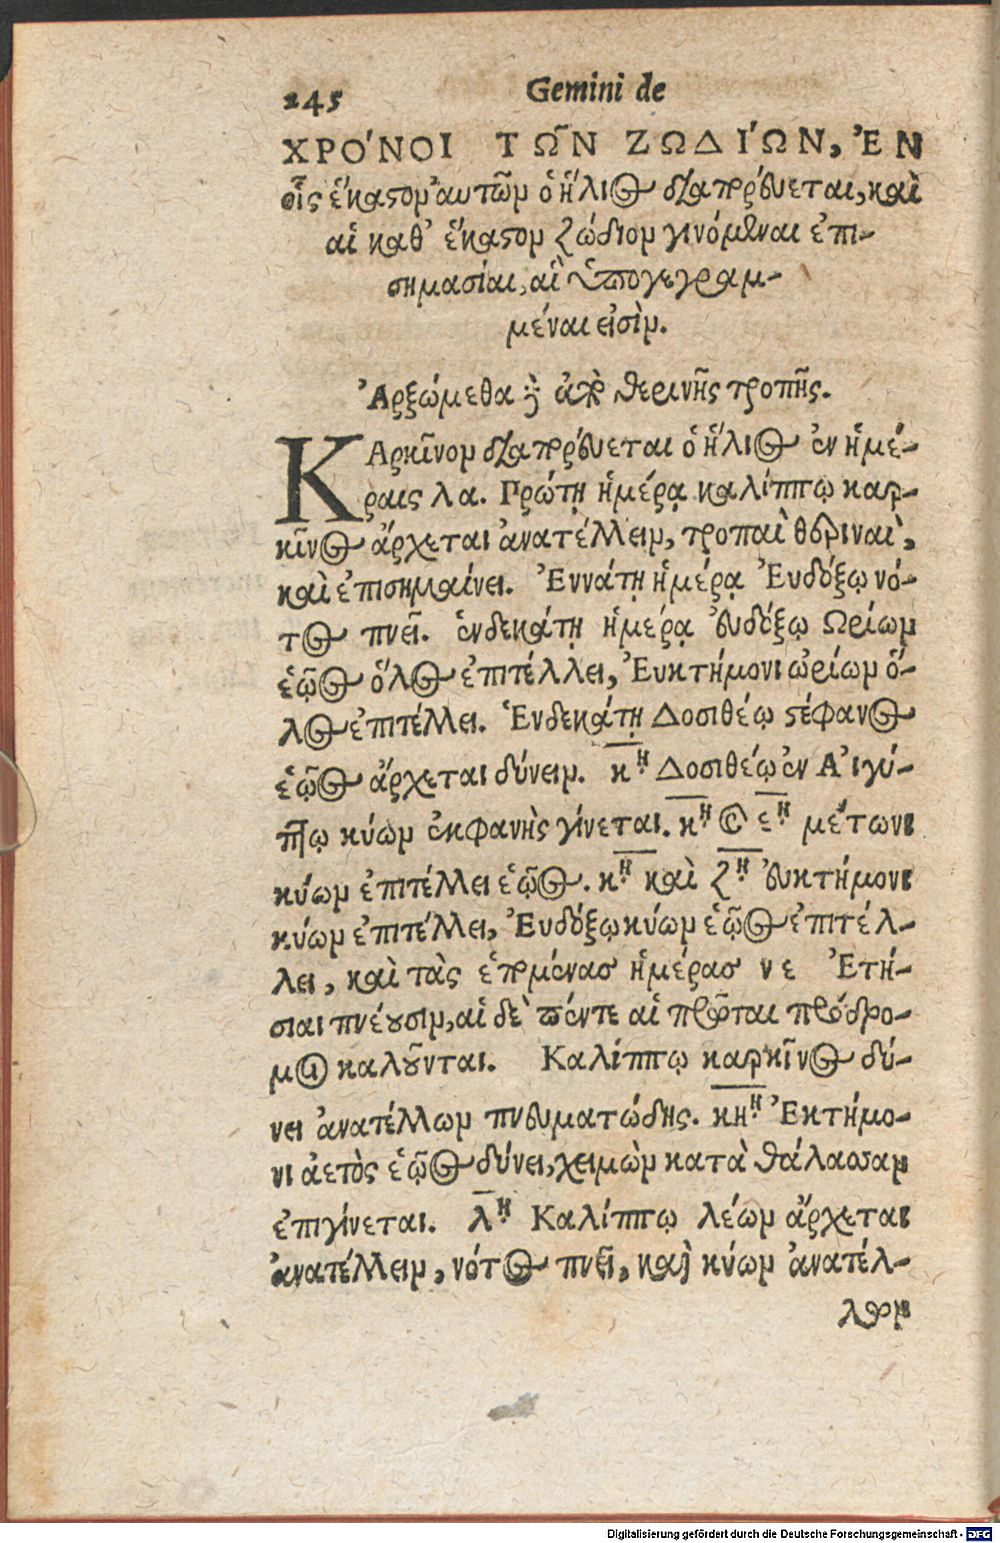 245 Gemini de
ΧΡΟ´ΝΟΙ ΤΩ͂Ν ΖΩΔΙ´ΩΝ, ἘΝ
οἷς ἕκαστον αὐτῶν ὁ ἥλιος διαπορεύεται, καὶ
αἱ καθ' ἕκαστον ζώδιον γινόμεναι ἐπι-
σημασίαι, αἳ ὑπογεγραμ-
μέναι εἰσὶν.
Ἀρξώμεθα ἀπὸ θερινῆς τροπῆς.
ΚΑρκῖνον διαπορεύεται ὁ ἥλιος ἐν ἡμέ-
ραις λα. Πρώτῃ ἡμέρᾳ καλίππῳ καρ-
κῖνος ἄρχεται ἀνατέλλειν, τροπαὶ θεριναὶ,
καὶ ἐπισημαίνει. Ἐννάτῃ ἡμέρᾳ Ἐυδόξῳ νό-
τος πνεῖ. ἑνδεκάτῃ ἡμέρᾳ ἐυδόξῳ Ωρίων
ἑῷος ὅλος ἐπιτέλλει, Ἐυκτήμονι ὠρίων ὅ-
λος ἐπιτέλλει. Ἑνδεκάτῃ Δοσιθέῳ στέφανος
ἑῷος ἄρχεται δύνειν. κῃ Δοσιθέῳ ἐν Αἰγύ-
πτῳ κύων ἐκφανὴς γίνεται. κῃ καὶ εῃ μέτωνι
κύων ἐπιτέλλει ἑῷος. κῃ καὶ ζῃ ἐυκτήμονι
κύων ἐπιτέλλει, Ἐυδόξῳ κύων ἑῷος ἐπιτέλ-
λει, καὶ τὰς ἑπομένας ἡμέρας νε Ἐτή-
σιαι πνέουσιν, αἱ δὲ πέντε αἱ πρῶται πρόδρο-
μοι καλοῦνται. Καλίππῳ καρκῖνος δύ-
νει ἀνατέλλων πνευματώδης. κηῃ Ἐκτήμο-
νι ἀετὸς ἑῷος δύνει, χειμὼν κατὰ θάλασσαν
ἐπιγίνεται. λῃ Καλίππῳ λέων ἄρχεται
ἀνατέλλειν, νότος πνεῖ, καὶ κύων ἀνατέλ-
λων
Digitalisierung gefördert durch die Deutsche Forschungsgemeinschaft - DFG